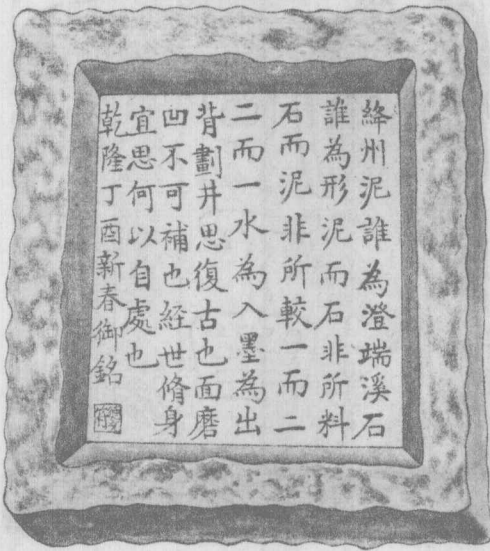 絳州泥誰為澄端溪石
誰為形泥而石非所料
石而泥非所較一而二
二而一水為入墨為出
背劃井思復古也面磨
凹不可補也経世脩身
宜思何以自處也
乾隆丁酉新春御銘